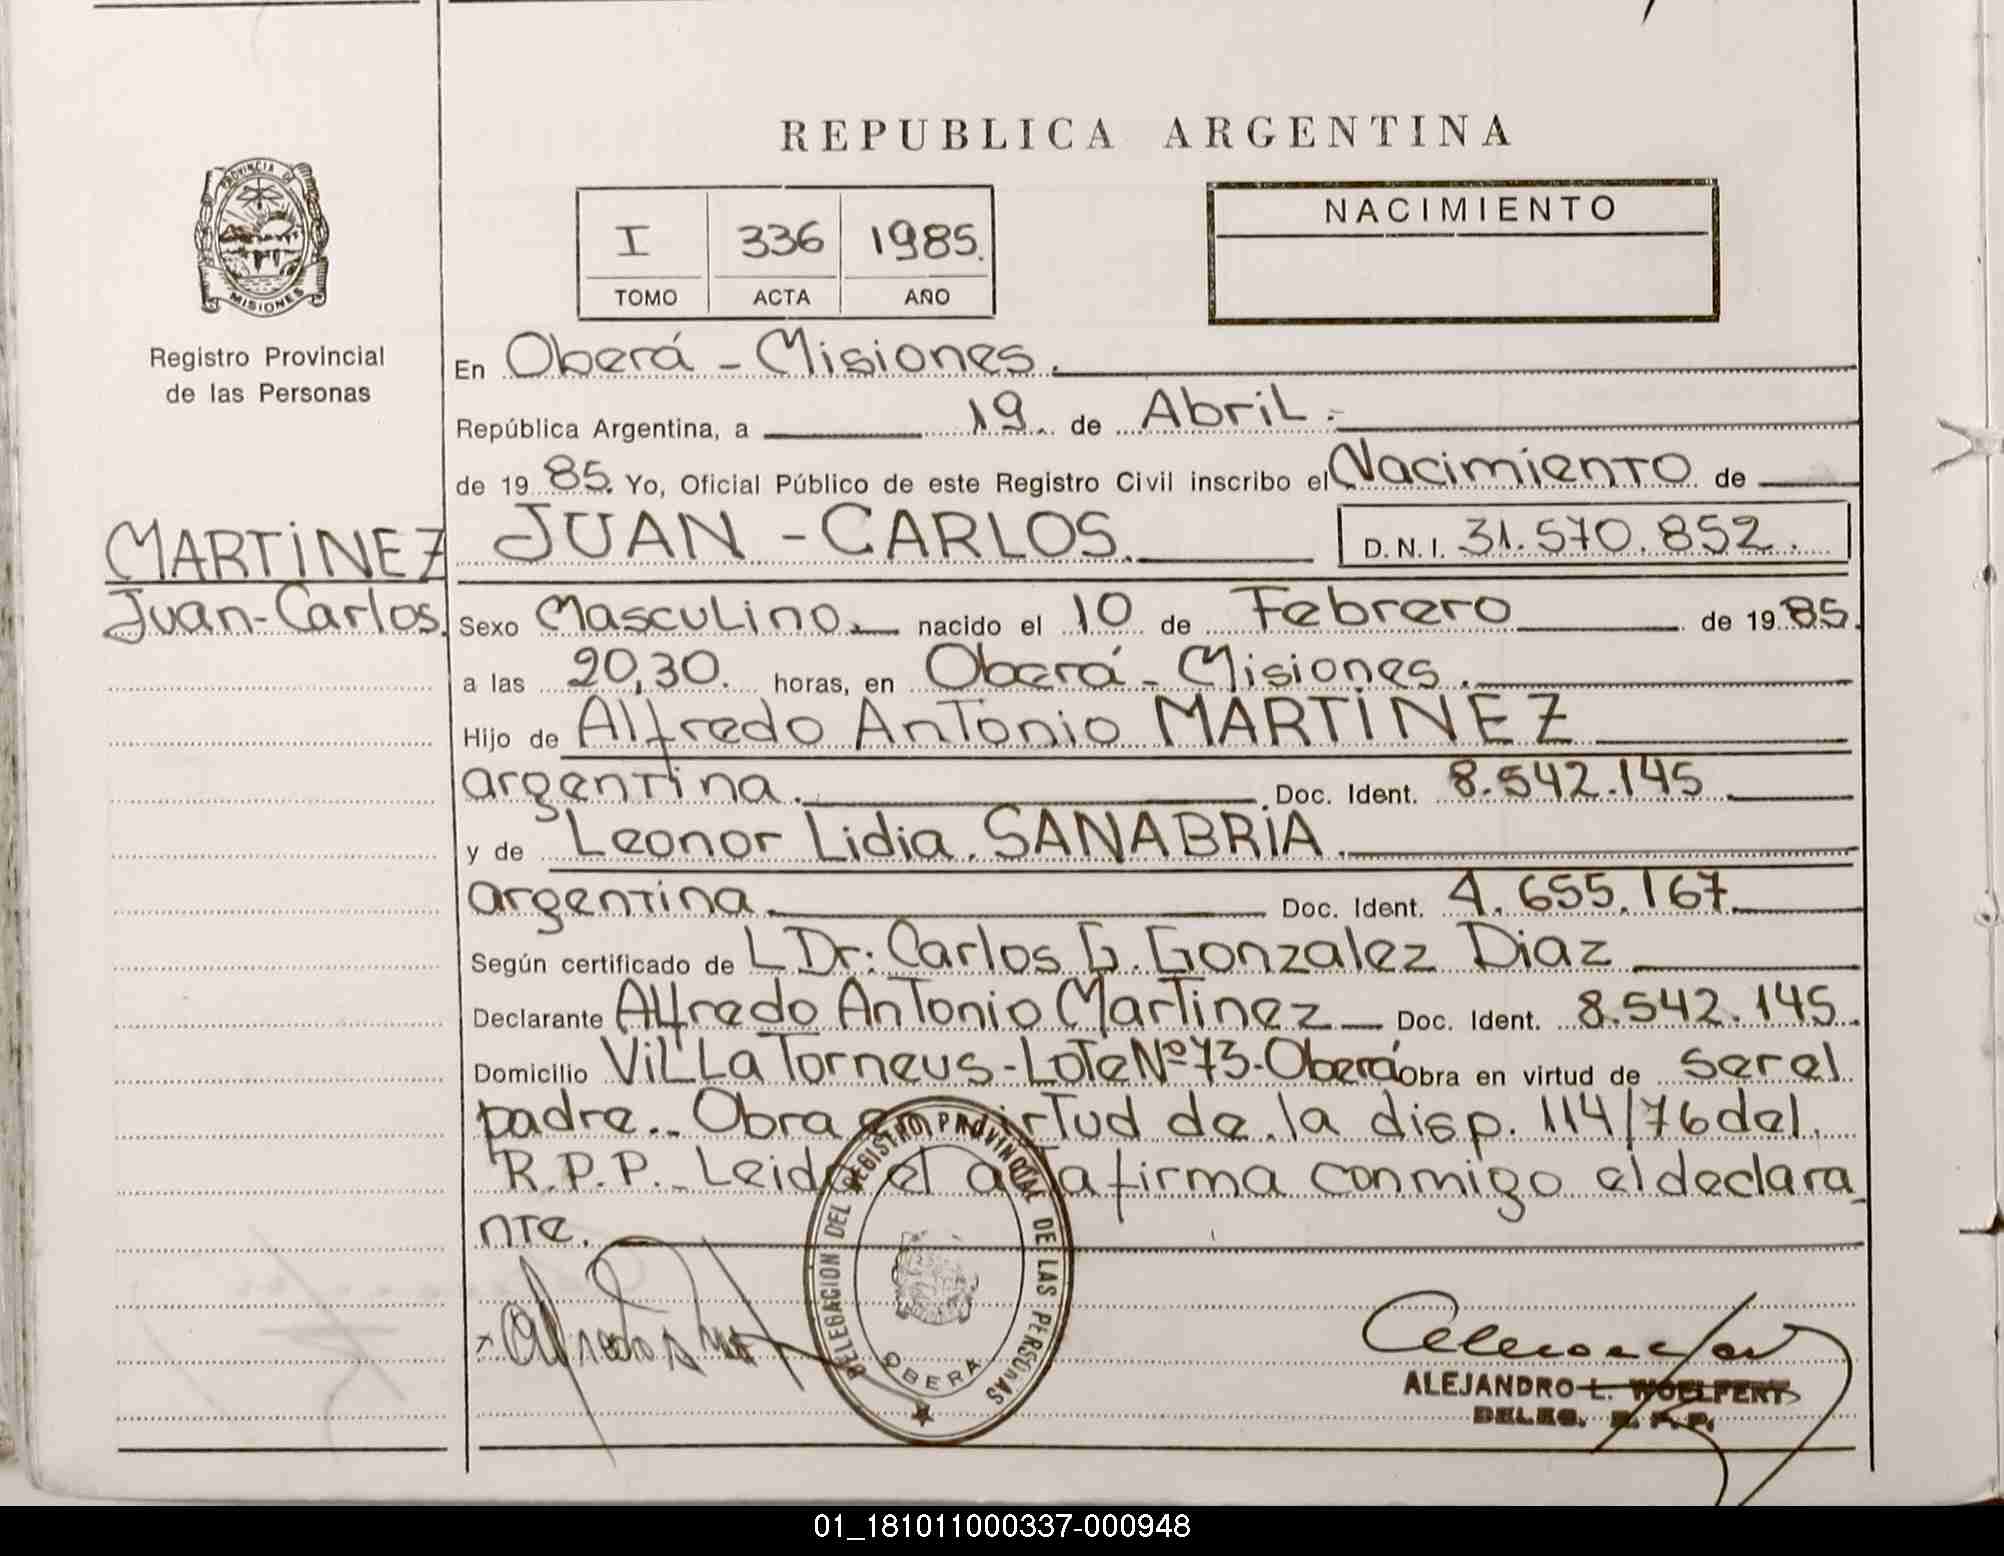 REPUBLICA ARGENTINA
PROVINCIA DE
MISIONES
Registro Provincial
de las Personas
I 336 1985.
TOMO ACTA AÑO
NACIMIENTO
En Oberá - Misiones.
República Argentina, a 19 de Abril.
de 1985. Yo, Oficial Público de este Registro Civil inscribo el Nacimiento de
MARTINEZ
Juan-Carlos.
JUAN - CARLOS. D.N.I. 31.570.852.
Sexo Masculino. nacido el 10 de Febrero de 1985.
a las 20,30. horas, en Oberá - Misiones.
Hijo de Alfredo Antonio MARTINEZ
argentina. Doc. Ident. 8.542.145
y de Leonor Lidia. SANABRIA.
argentina. Doc. Ident. 4.655.167.
Según certificado de L Dr: Carlos G. Gonzalez Diaz
Declarante Alfredo Antonio Martinez Doc. Ident. 8.542.145.
Domicilio Villa Torneus - Lote Nº 73 - Oberá Obra en virtud de ser el
padre.. Obra en virtud de la disp. 114/76 del
R.P.P. Leida el acta firma conmigo el declara
nte.
DELEGACION DEL REGISTRO PROVINCIAL DE LAS PERSONAS
OBERA
ALEJANDRO L. WOELFERT
DELEG. R. P. P.
01_181011000337-000948